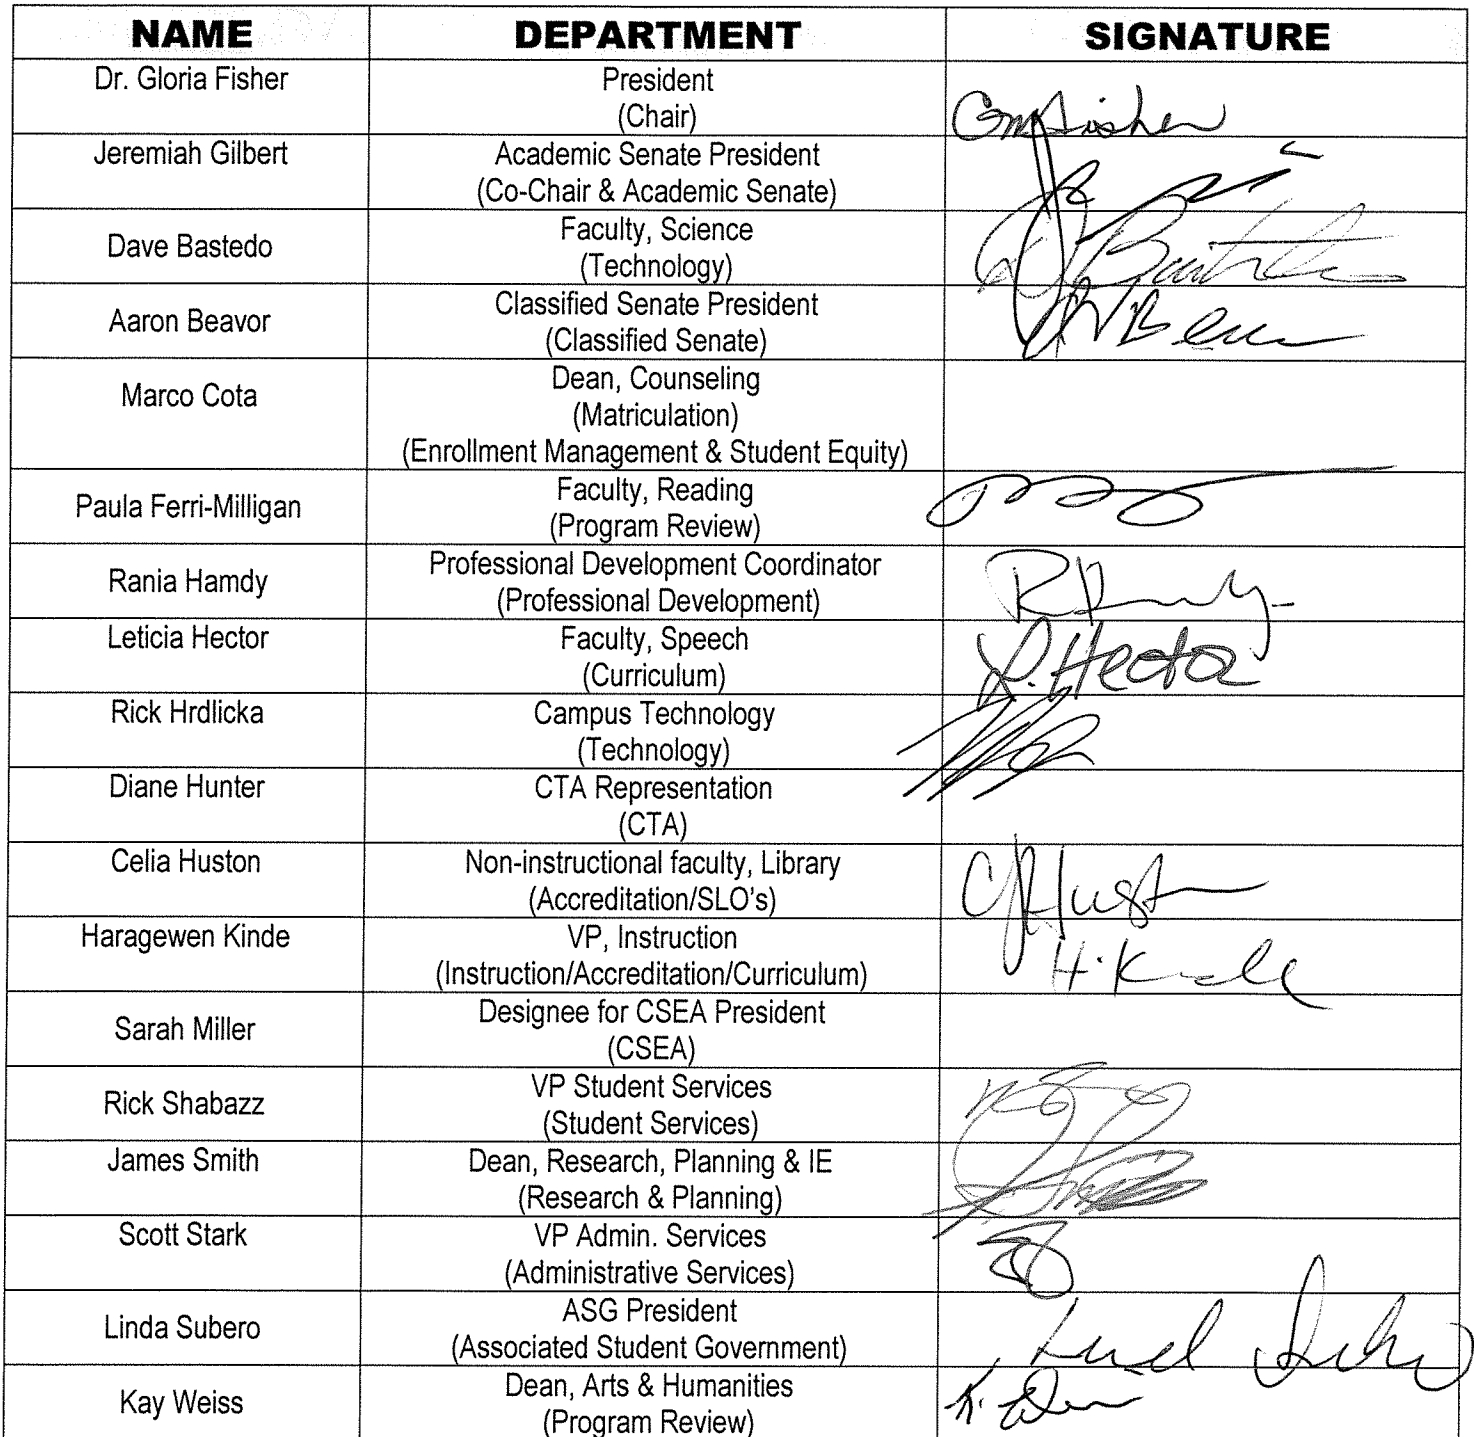 NAME DEPARTMENT SIGNATURE
Dr. Gloria Fisher President
(Chair)
GmFisher
Jeremiah Gilbert Academic Senate President
(Co-Chair & Academic Senate)
Dave Bastedo Faculty, Science
(Technology)
Aaron Beavor Classified Senate President
(Classified Senate)
Marco Cota Dean, Counseling
(Matriculation)
(Enrollment Management & Student Equity)
Paula Ferri-Milligan Faculty, Reading
(Program Review)
Rania Hamdy Professional Development Coordinator
(Professional Development)
Leticia Hector Faculty, Speech
(Curriculum)
L. Hector
Rick Hrdlicka Campus Technology
(Technology)
Diane Hunter CTA Representation
(CTA)
Celia Huston Non-instructional faculty, Library
(Accreditation/SLO's)
Haragewen Kinde VP, Instruction
(Instruction/Accreditation/Curriculum)
Sarah Miller Designee for CSEA President
(CSEA)
Rick Shabazz VP Student Services
(Student Services)
James Smith Dean, Research, Planning & IE
(Research & Planning)
Scott Stark VP Admin. Services
(Administrative Services)
Linda Subero ASG President
(Associated Student Government)
Kay Weiss Dean, Arts & Humanities
(Program Review)